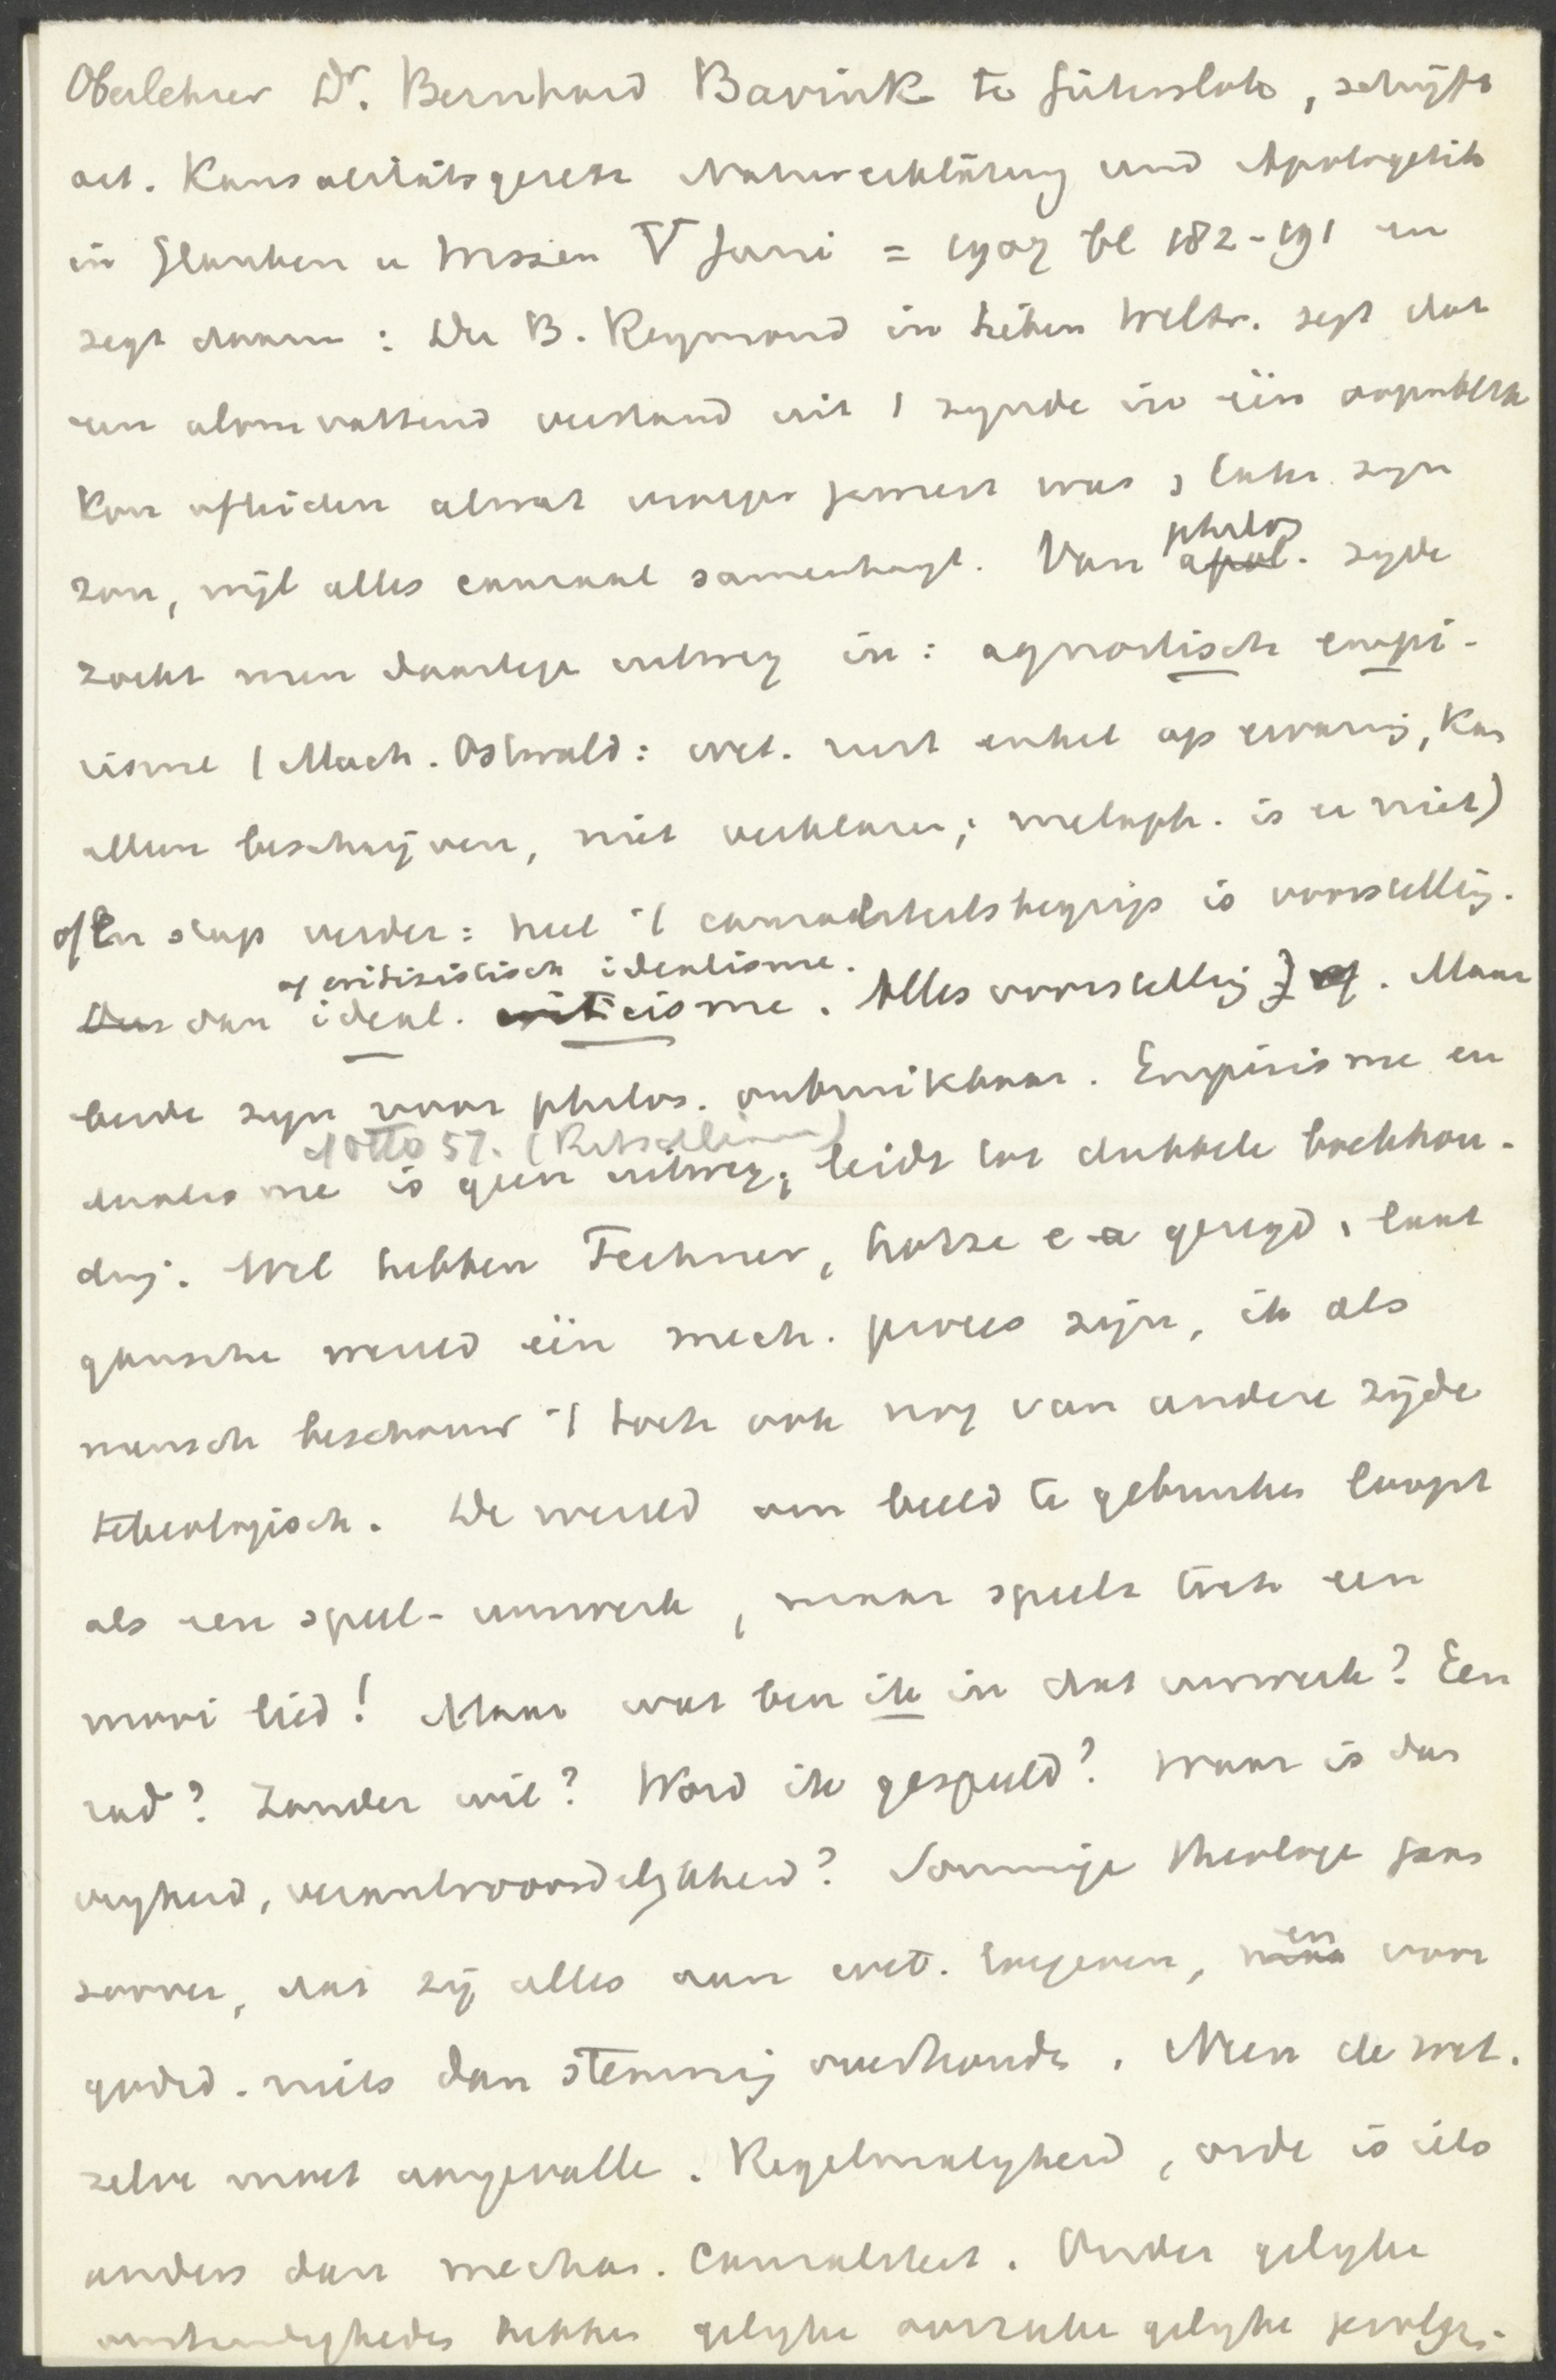 Oberlehrer Dr. Bernhard Bavink te Gütersloh, schryft
art. Kausalitätsgesetz Naturerklärung und Apologetik
in Glauben u Wissen V Juni = 1907 bl 182-191 en
zegt daarin: Du B. Reymond in sieben Weltr. zegt dat
een alomvattend verstand uit 't zynde in één oogenblik
kon afleiden alwat vroeger geweest was & later zyn
zou, wijl alles causaal samenhangt. Van philos apol. zyde
zocht men daartege uitweg in: agnostisch empi-
risme (Mach. Ostwald: wet. rust enkel op ervaring, kan
alleen beschrijven, niet verklaren; metaph. is er niet)
of En stap verder: heel 't causaliteitsbegrip is voorstelling.
of critizistisch idealisme.
Dus dan ideal. criticisme. Alles voorstelling. Maar
beide zyn voor philos. onbruikbaar. Empirisme en
cf Otto 57. (Ritschlianen)
dualisme is geen uitweg; leidt tot dubbele boekhou-
ding. Wel hebben Fechner, Lotze e a gezegd, laat
gansche wereld één mech. proces zijn, ik als
mensch beschouw 't toch ook nog van andere zijde
teleologisch. De wereld om beeld te gebruiken loopt
als een speel-uurwerk, maar speelt toch een
mooi lied! Maar wat ben ik in dat uurwerk? Een
rad? Zonder wil? Word ik gespeeld? Waar is dan
vryheid, verantwoordelykheid? Sommige theologe gaan
zoover, dat zij alles aan wet. toegeven, en voor
godsd. mits dan stemming overhoude. Neen de wet.
zelve moet aangevalle. Regelmatigheid, orde is iets
anders dan mechan. causaliteit. Onder gelyke
omstandighedes hebben gelyke oorzake gelyke gevolge;